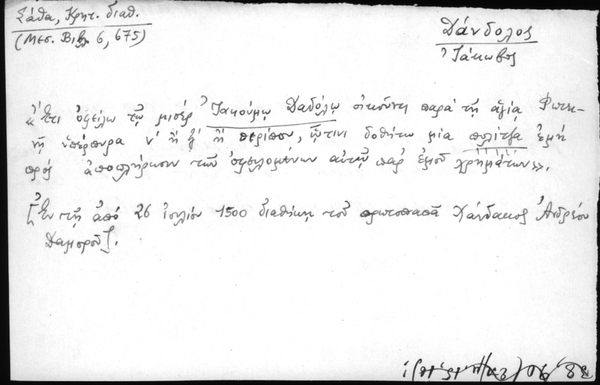 Σάθα, Κρητ. διαθ.
(Μεσ. Βιβλ. 6, 675)
Δάνδολος
Ἰάκωβος
«Ἔτι ὀφείλω τῷ μισὲρ Ἰακούμῳ Δαδόλῳ οἰκοῦντι παρὰ τῇ ἁγίᾳ Φωτει-
νῇ ὑπέρπυρα ν' ἢ ξ' ἢ περίπου, ᾧτινι δοθήτω μία πολίτζα ἐμὴ
πρὸς ἀποπλήρωσιν τῶν ὀφειλομένων αὐτῷ παρ' ἐμοῦ χρημάτων».
[Ἐν τῇ ἀπὸ 26 ἰουλίου 1500 διαθήκῃ τοῦ πρωτοπαπᾶ Χάνδακος Ἀνδρέου